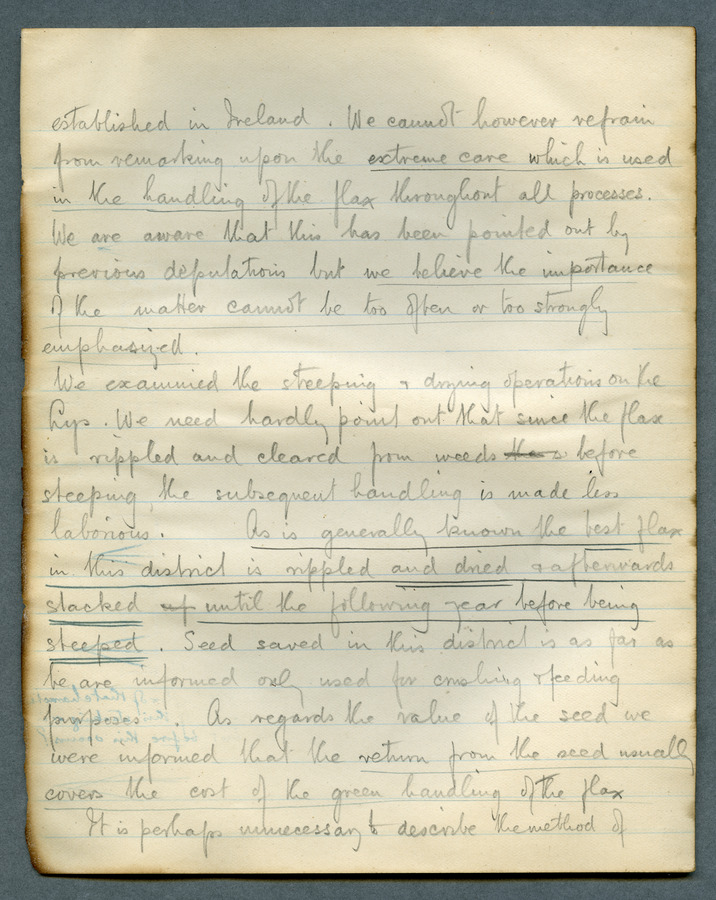 established in Ireland. We cannot however refrain
from remarking upon the extreme care which is used
in the handling of the flax throughout all processes.
We are aware that this has been pointed out by
previous deputations but we believe the importance
of the matter cannot be too often or too strongly
emphasized.
We examined the steeping & drying operations on the
Lys. We need hardly point out that since the flax
is rippled and cleared from weeds before
steeping, the subsequent handling is made less
laborious. As is generally known the best flax
in this district is rippled and dried & afterwards
stacked up until the following year before being
steeped. Seed saved in this district is as far as
be are informed only used for crushing & feeding
purposes. As regards the value of the seed we
were informed that the return from the seed usually
covers the cost of the green handling of the flax
It is perhaps unnecessary to describe the method of